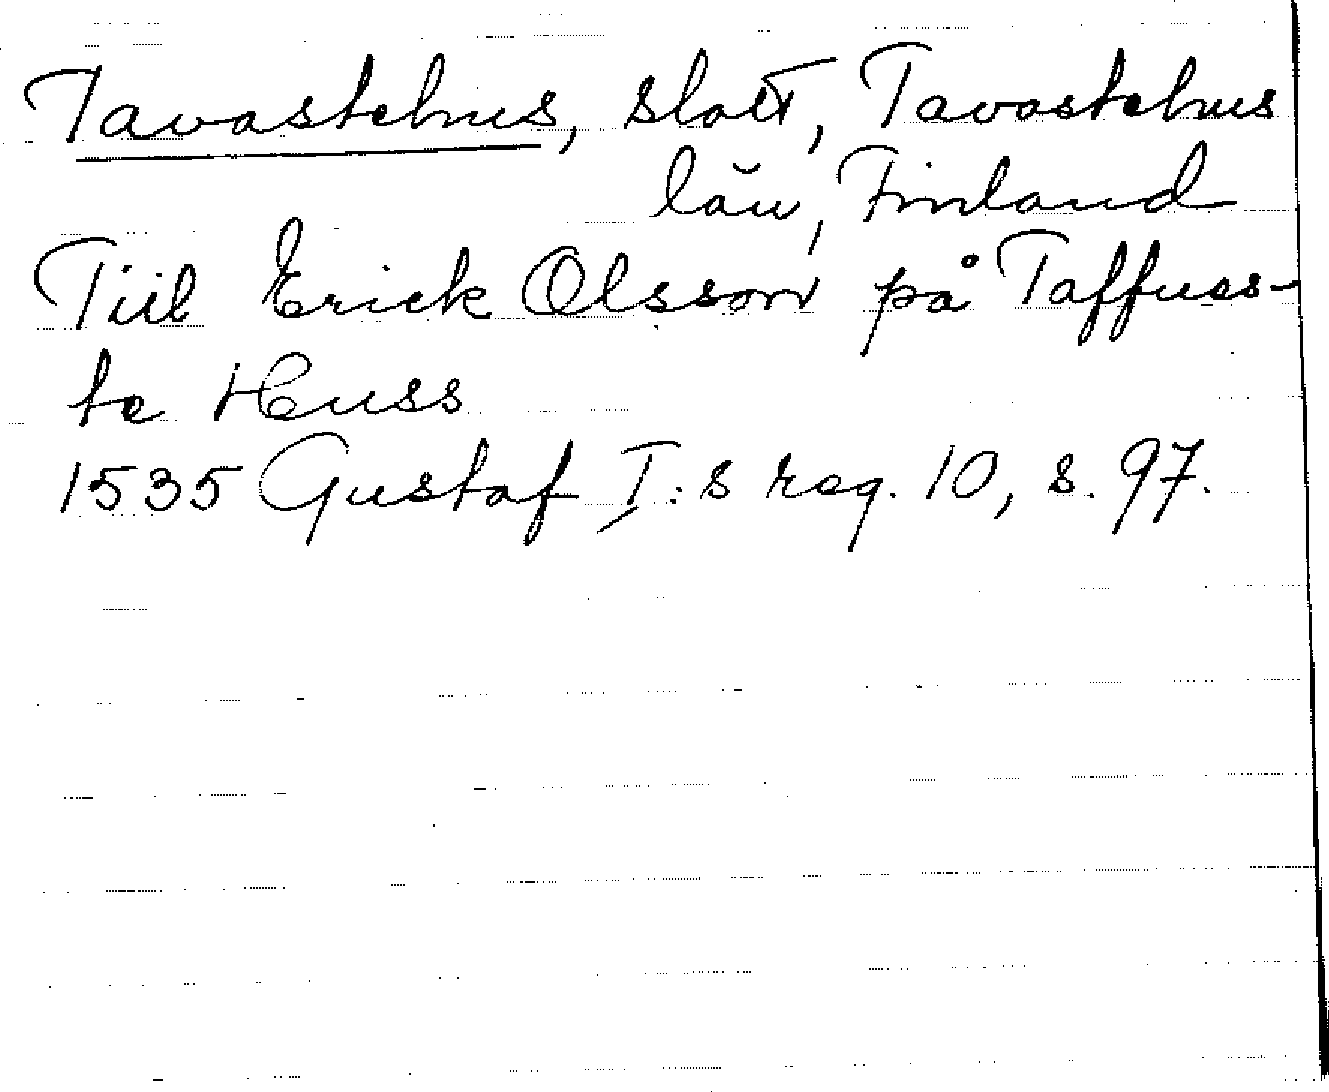 Tavastehus, slott, Tavastehus
län, Finland
Tiil Erick Olsson på Taffuss-
te Huss
1535 Gustaf I:s reg. 10, s. 97.